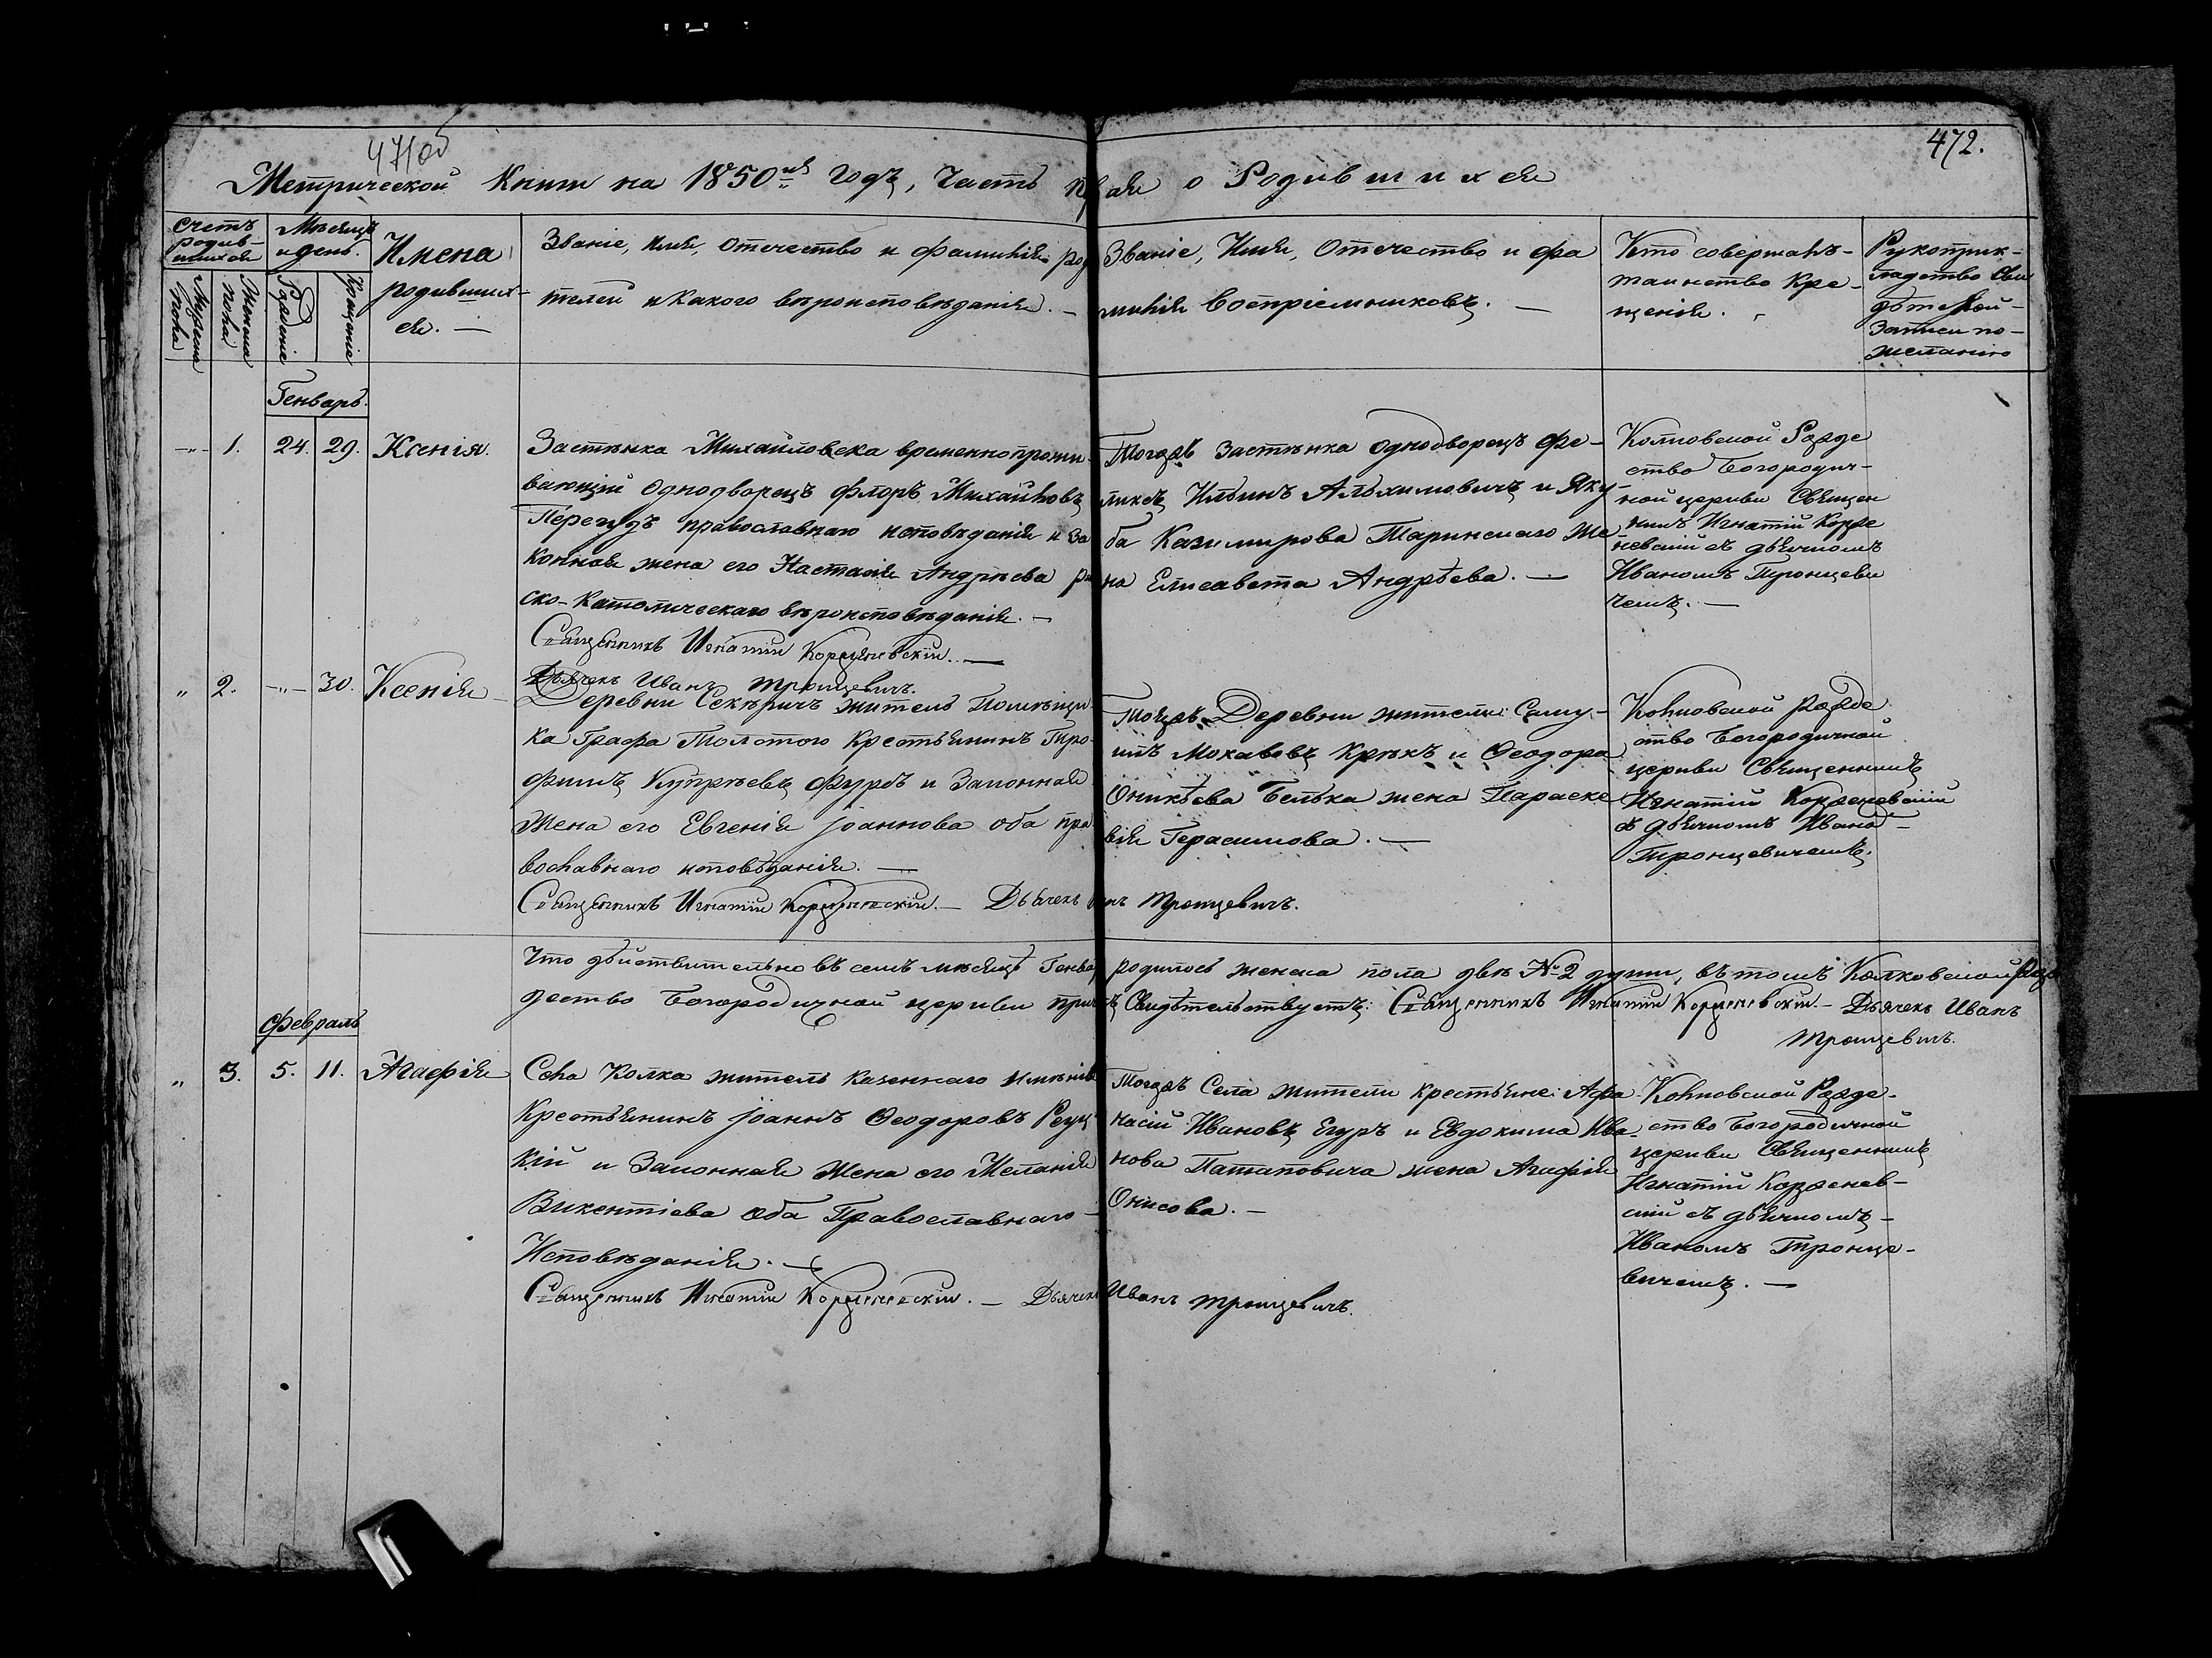 471об
472.
Метрической Книги на 1850ый Годъ, Часть о Родившихся
Счетъ
родив-
шихся
Мѣсяцъ
и день.
Мужеска
пола
Женска
пола
Рожденіе
Крещеніе
Имена
родивших-
ся. —
Званіе, Имя, Отечество и Фамилія ро
телей и Какого вѣроисповѣданія. —
Званіе, Имя, Отечество и фа
милія Воспріемниковъ. —
Кто совершалъ-
таинство Кре-
щенія.
Рукоприк-
ладство Сви
дѣтелей-
Записи по-
желанію
Генварь.
1. 24. 29. Ксенія.
Застѣнка Михайловска временно прожи-
вающій Однодворецъ Флоръ Михайловъ
православнаго исповѣданія и За
конная жена его Настасія Андрѣева
ско-Католическаго вѣроисповѣданія. —
Священникъ Игнатій Корженевскій. —
Дьячекъ Иванъ Тронцевичъ.
Тогожъ Застѣнка Однодворецъ Фе-
ликсъ Ильинъ и Яку-
ба Казимирова Же
на Елисавета Андрѣева. —
Колковской Рожде
ство Богородич-
ной церкви Священ
никъ Игнатій Корже
невскій съ дьячкомъ
Иваномъ Тронцеви
чемъ. —
2. 30. Ксенія
Деревни Секѣричъ житель Помѣщи-
ка Графа Толстого Крестьянинъ Тро-
фимъ Купрѣевъ Фурсъ и Законная
Жена его Евгенія Іоаннова оба пра-
вославнаго исповѣданія. —
Священникъ Игнатій Корженевскій. — Дьячекъ нъ Тронцевичъ.
Тогожъ Деревни жители: Саму-
илъ и Ѳеодора
Оникѣева жена Параске
вія Герасимова. —
Колковской Рожде
ство Богородичной
церкви Священникъ
Игнатій Корженевскій
съ дьячкомъ Ивано-
Тронцевичемъ.
Что дѣйствительно въ семъ мѣсяцѣ Генва родилось женска пола двѣ №2 души, въ томъ Колковской Рож
дество Богородичной церкви при Свидѣтельствуетъ: Священникъ Игнатій Корженевскій. — Дьячекъ Иванъ
Тронцевичъ.
Февраль
3. 5. 11. Агафія
Села Колка житель казеннаго имѣнія
Крестьянинъ Іоаннъ Ѳеодоровъ Рец
кій и Законная Жена его Меланія
Викентіева оба Православнаго —
Исповѣданія. —
Священникъ Игнатій Корженевскій. — Дьячекъ Иванъ Тронцевичъ.
Тогожъ Села жители крестьяне: Афа
насій Ивановъ Егуръ и Евдокима Ива-
нова Патаповича жена Агафія
Онисова. —
Колковской Рожде-
ство Богородичной
церкви Священникъ
Игнатій Корженев-
скій съ дьячкомъ —
Иваномъ Тронце-
вичемъ. —